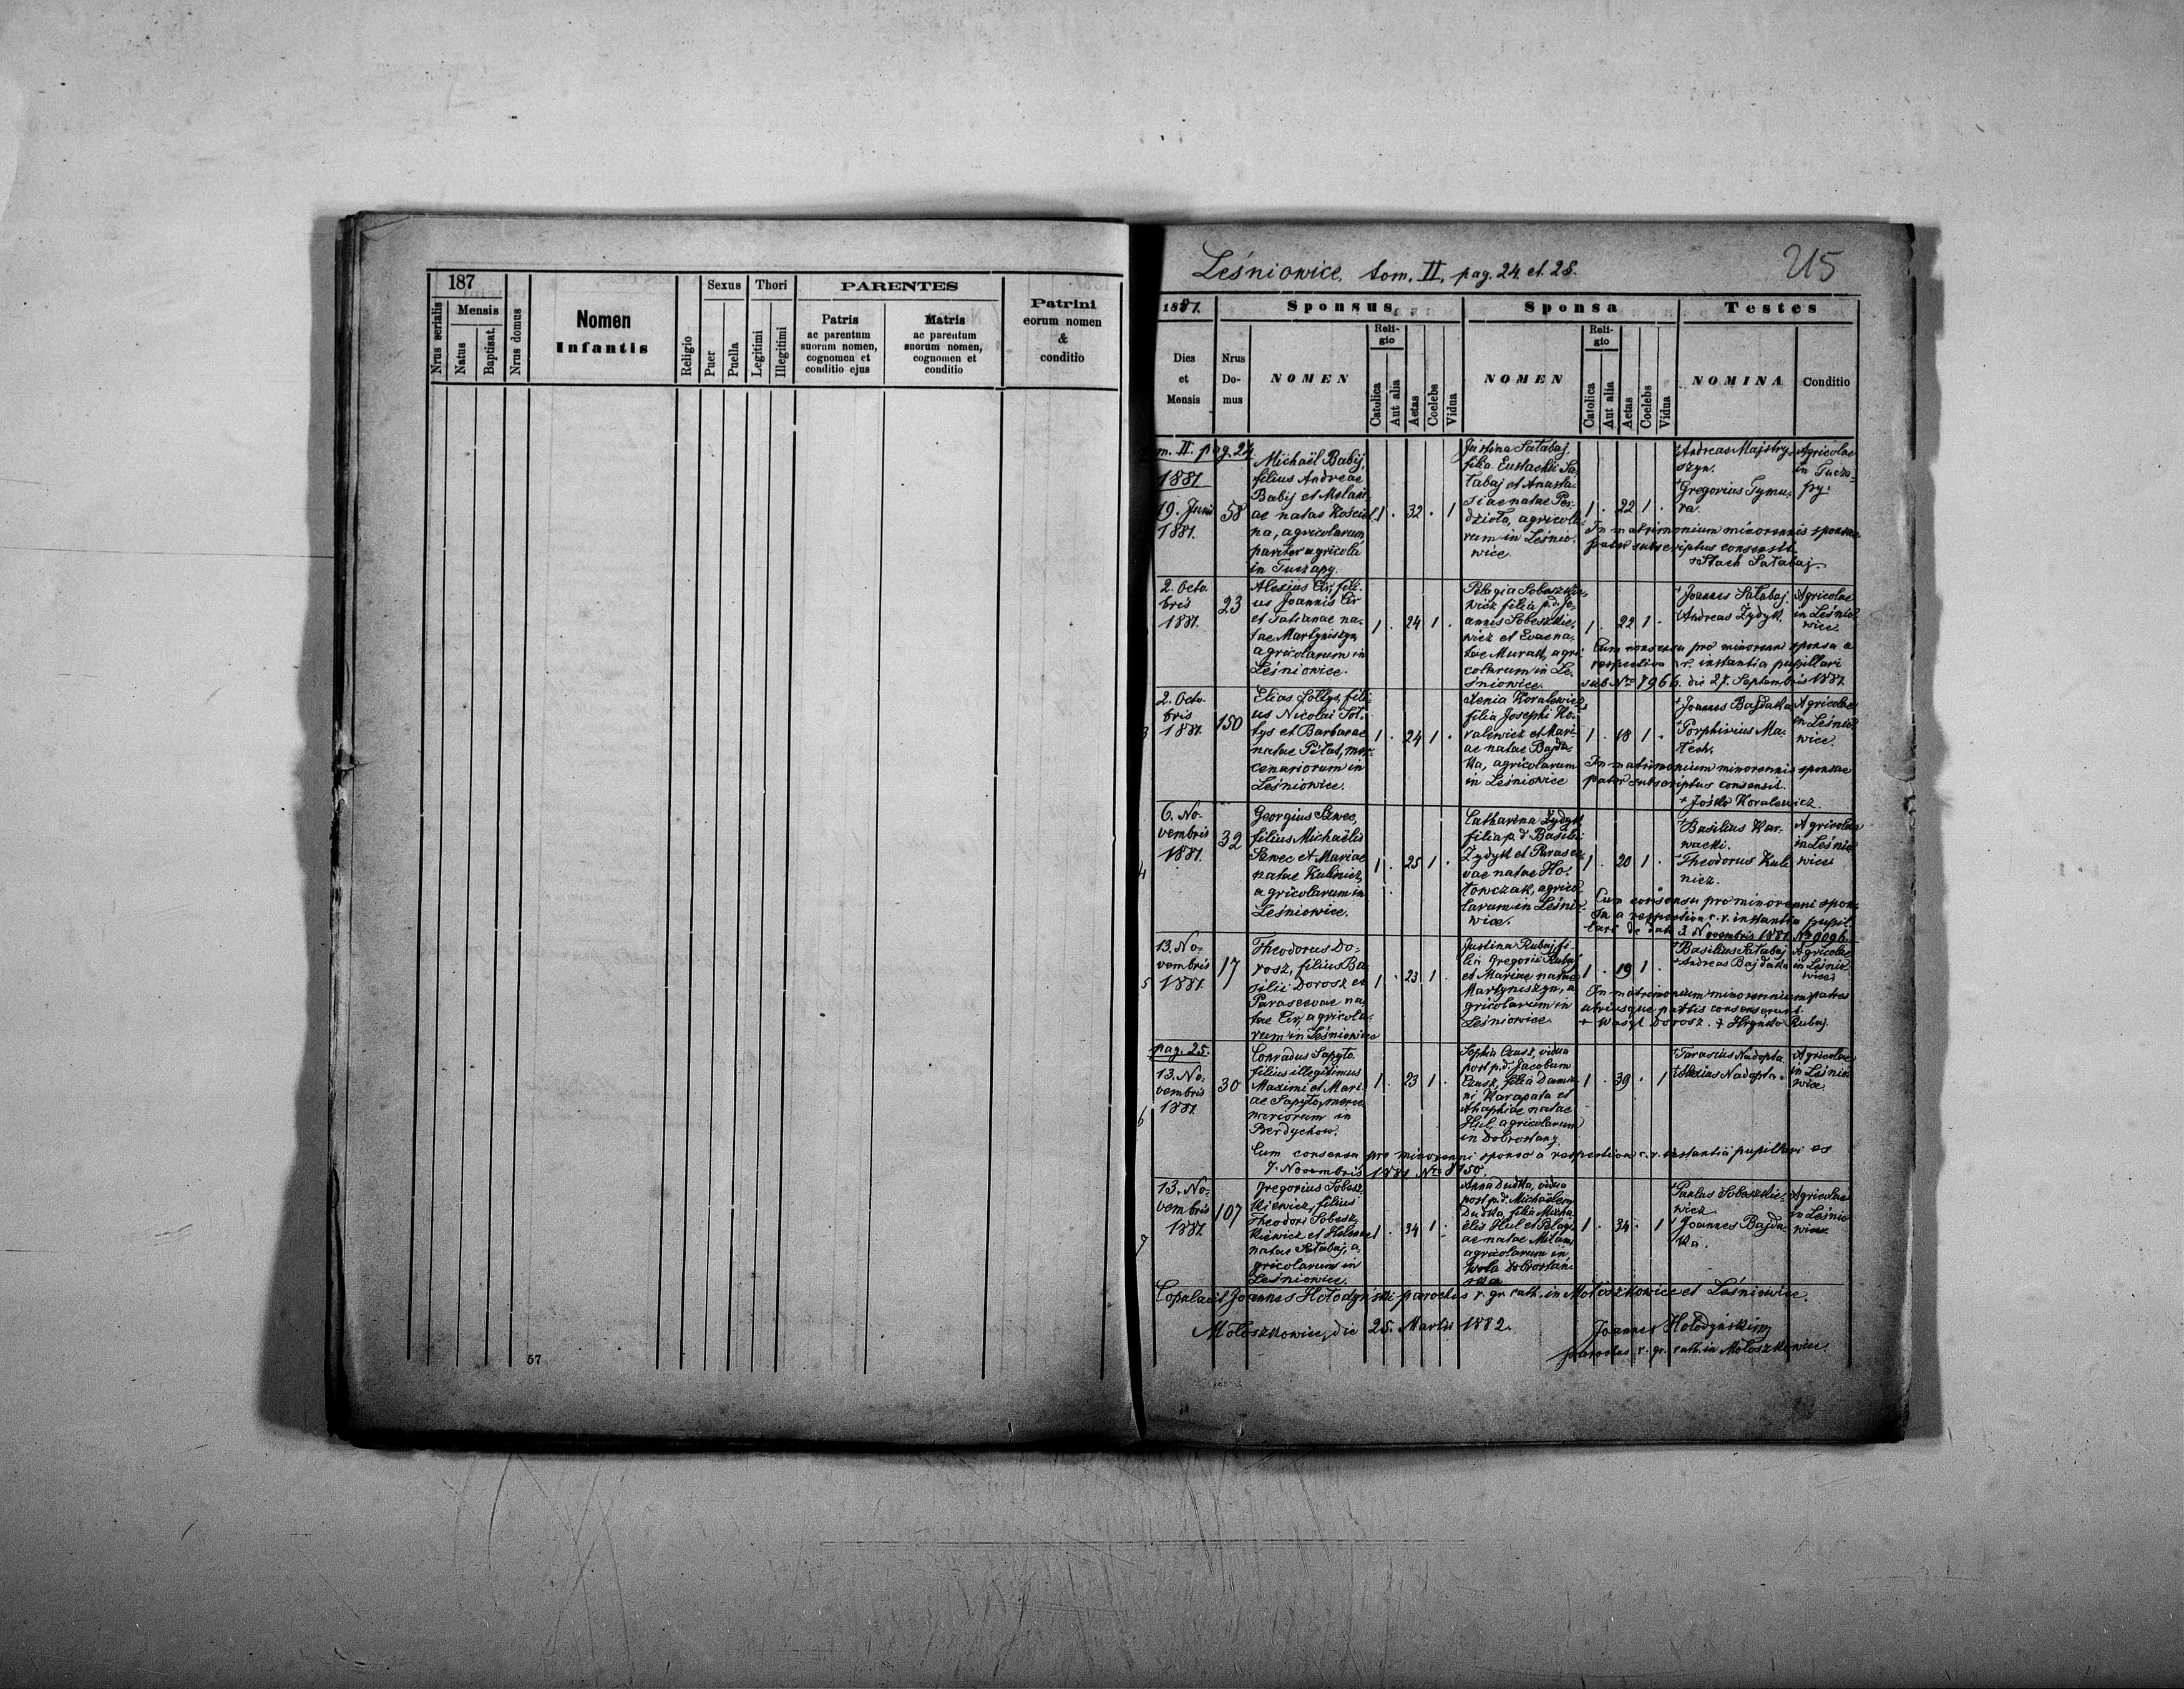 187
Nrus serialis
Mensis
Natus
Baptisat.
Nrus domus
Nomen
Infantis
Religio
Sexus
Puer
Puella
Thori
Legitimi
Illegitimi
PARENTES
Patris
ac parentum
suorum nomen,
cognomen et
conditio ejus
Matris
ac parentum
suorum nomen,
cognomen et
conditio
Patrini
eorum nomen
&
conditio
57
Leśniowice, tom. II, pag. 24. et. 25.
215
1881.
Sponsus
Sponsa
Testes
Dies
et
Mensis
Nrus
Do-
mus
NOMEN
Reli-
gio
Catolica
Aut alia
Aetas
Coelebs
Vidua
NOMEN
Reli-
gio
Catolica
Aut alia
Aetas
Coelebs
Vidua
NOMINA
Conditio
m. II. pag. 24.
1881
19. Junii
1881.
58
Michaël Babij,
filius Andreae
Babij et Melani-
ae natae
na, agricolarum
pariter agricola
in Tuczapy.
1 . 32 . 1
Justina Sałabaj,
filia Eustachii Sa-
łabaj et Anasta-
siae natae Per-
dzioła, agricola-
rum in Leśnio-
wice.
1 . 22 1 .
+Andreas Majstry-
szyn.
+Gregorius Tymu-
ra.
Agricolae
in Tucza-
py.
In matrimonium minorennis sponsae
pater subscriptus consensit.
+Stach Sałabaj.
2. Octo-
bris
1881.
23
Alesius Cir, fili-
us Joannis Cir
et Tatianae na-
tae Martyniszyn,
agricolarum in
Leśniowice.
1 . 24 1 .
Pelagia Sobeszkie-
wicz filia p. d. Jo-
annis Sobeszkie-
wicz et Evae na-
tae Murak, agri-
colarum in Le-
śniowice.
1 . 22 1 .
+Joannes Sałabaj.
+Andreas Zydyk.
Agricolae
in Leśnio-
wice.
Cum consensu pro minorenni sponsa a
respectiva c. r. instantia pupillari
sub Nro 7966. die 27. Septembris 1881.
3
2. Octo-
bris
1881.
150
Elias Sołtys, fili-
us Nicolai Soł-
tys et Barbarae
natae Piłat, mer-
cenariorum in
Leśniowice.
1 . 24 1 .
Xenia Kovalewicz,
filia Josephi Ko-
valewicz et Mari-
ae natae Bajda-
ka, agricolarum
in Leśniowice
1 . 18 1 .
+Joannes Bajdaka
+Porphirius Ma-
łech.
Agricolae
in Leśnio-
wice.
In matrimonium minorennis sponsae
pater subscriptus consensit.
+ Jośko Kovalewicz.
4
6. No-
vembris
1881.
32
Georgius Szwec,
filius Michaëlis
Szwec et Mariae
natae Kulinicz,
agricolarum in
Leśniowice.
1 . 25 1 .
Catharina Zydyk
filia p. d. Basilii
Zydyk et Parasce-
vae natae Ho-
łowczak, agrico-
larum in Leśnio-
wice.
1 . 20 1 .
+Basilius Kar-
wacki.
+Theodorus Kuli-
nicz.
Agricolae
in Leśnio-
wice.
Cum consensu pro minorenni spon-
sa a respectiva c. r. instantia pupil-
lari de dato 3. Novembris 1881. No 9096.
5
13. No-
vembris
1881.
17
Theodorus Do-
rosz, filius Ba-
silii Dorosz et
Parascevae na-
tae Cir, agricola-
rum in Leśniowice
1 . 23 1 .
Justina Rubaj fi-
lia Gregorii Rubaj
et Mariae natae
Martyniszyn, a-
gricolarum in
Leśniowice.
1 . 19 1 .
+Basilius Sałabaj
+Andreas Bajdaka
Agricolae
in Leśnio-
wice.
In matrimonium minorennium patres
utriusque partis consenserunt.
+ Wasyl Dorosz. + Hryńko Rubaj.
pag. 25.
6
13. No-
vembris
1881.
30
Conradus Sapyto
filius illegitimus
Maximi et Mari-
ae Sapyto, merce-
nariorum in
Berdychow.
1 . 23 1 .
Sophia Czusz, vidua
post p. d. Jacobum
Czusz, filia Damia-
ni Karapata et
Ahaphiae natae
Hul, agricolarum
in Dobrostany.
1 . 39 . 1
+Tarasius Nadopta.
+Alexius Nadopta.
Agricolae
in Leśnio-
wice.
Cum consensu pro minorenni sponso a respectiva c. r. instantiâ pupillari
7. Novembris 1881. Nro 8150
7
13. No-
vembris
1881.
107
Gregorius Sobesz-
kiewicz, filius
Theodori Sobesz-
kiewicz et Helenae
natae Sałabaj, a-
gricolarum in
Leśniowice.
1 . 34 1 .
Anna Dudka, vidua
post p. d. Michaëlem
Dudka, filia Micha-
ëlis Hul et Pelagi-
ae natae Milan,
agricolarum in
Wola Dobrostań-
ska
1 . 34 . 1
+Paulus Sobeszkie-
wicz.
+Joannes Bajda-
ka.
Agricolae
in Leśnio-
wice.
Copulavit Joannes Hołodyński parochus r. gr. cath. in Mołoszkowice et Leśniowice.
Mołoszkowice, die 25. Martii 1882.
Joannes Hołodyński mp
parochus r. gr. cath. in Mołoszkowice.